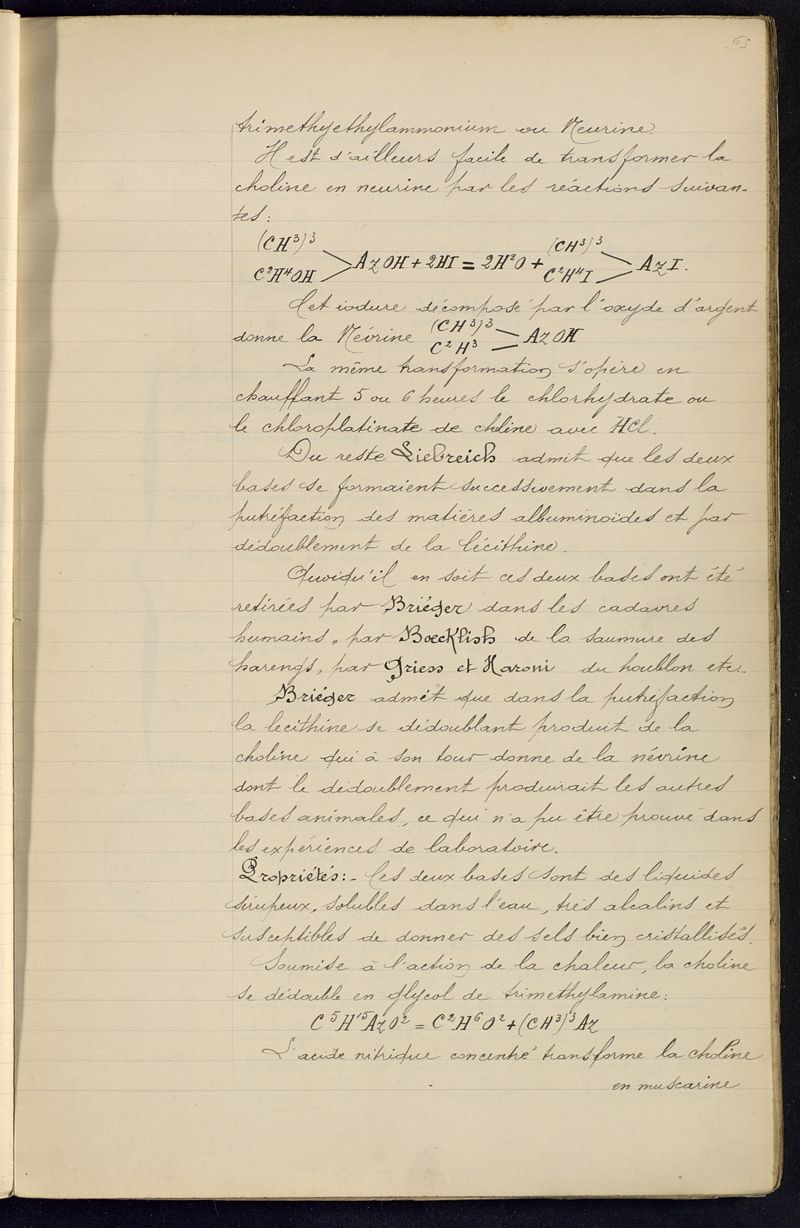 65
trimethyethylammonium ou Neurine.
Il est d'ailleurs facile de transformer la
choline en neurine par les réactions suivan-
tes:
(CH³)³
C²H⁴OH > AzOH + 2HI = 2H²O + (CH³)³
C²H⁴I > AzI.
Cet iodure décomposé par l'oxyde d'argent
donne la Névrine (CH³)³
C²H³ > AzOH
La même transformation s'opère en
chauffant 5 ou 6 heures le chlorhydrate ou
le chloroplatinate de choline avec HCl.
Du reste Liebreich admit que les deux
bases se formaient successivement dans la
putréfaction des matières albuminoïdes et par
dédoublement de la lécithine.
Quoiqu'il en soit ces deux bases ont été
retirées par Briéger dans les cadavres
humains, par Boecklish de la saumure des
harengs, par Griess et Haroni du houblon etc..
Briéger admet que dans la putréfaction
la lecithine se dédoublant produit de la
choline qui à son tour donne de la névrine
dont le dédoublement produirait les autres
bases animales, ce qui n'a pu être prouvé dans
les expériences de laboratoire.
Propriétés:- Ces deux bases sont des liquides
sirupeux, solubles dans l'eau, très alcalins et
susceptibles de donner des sels bien cristallisés.
Soumise à l'action de la chaleur, la choline
se dédouble en glycol de trimethylamine:
C⁵H¹⁵AzO² = C²H⁶O² + (CH³)³Az
L'acide nitrique concentré transforme la choline
en muscarine